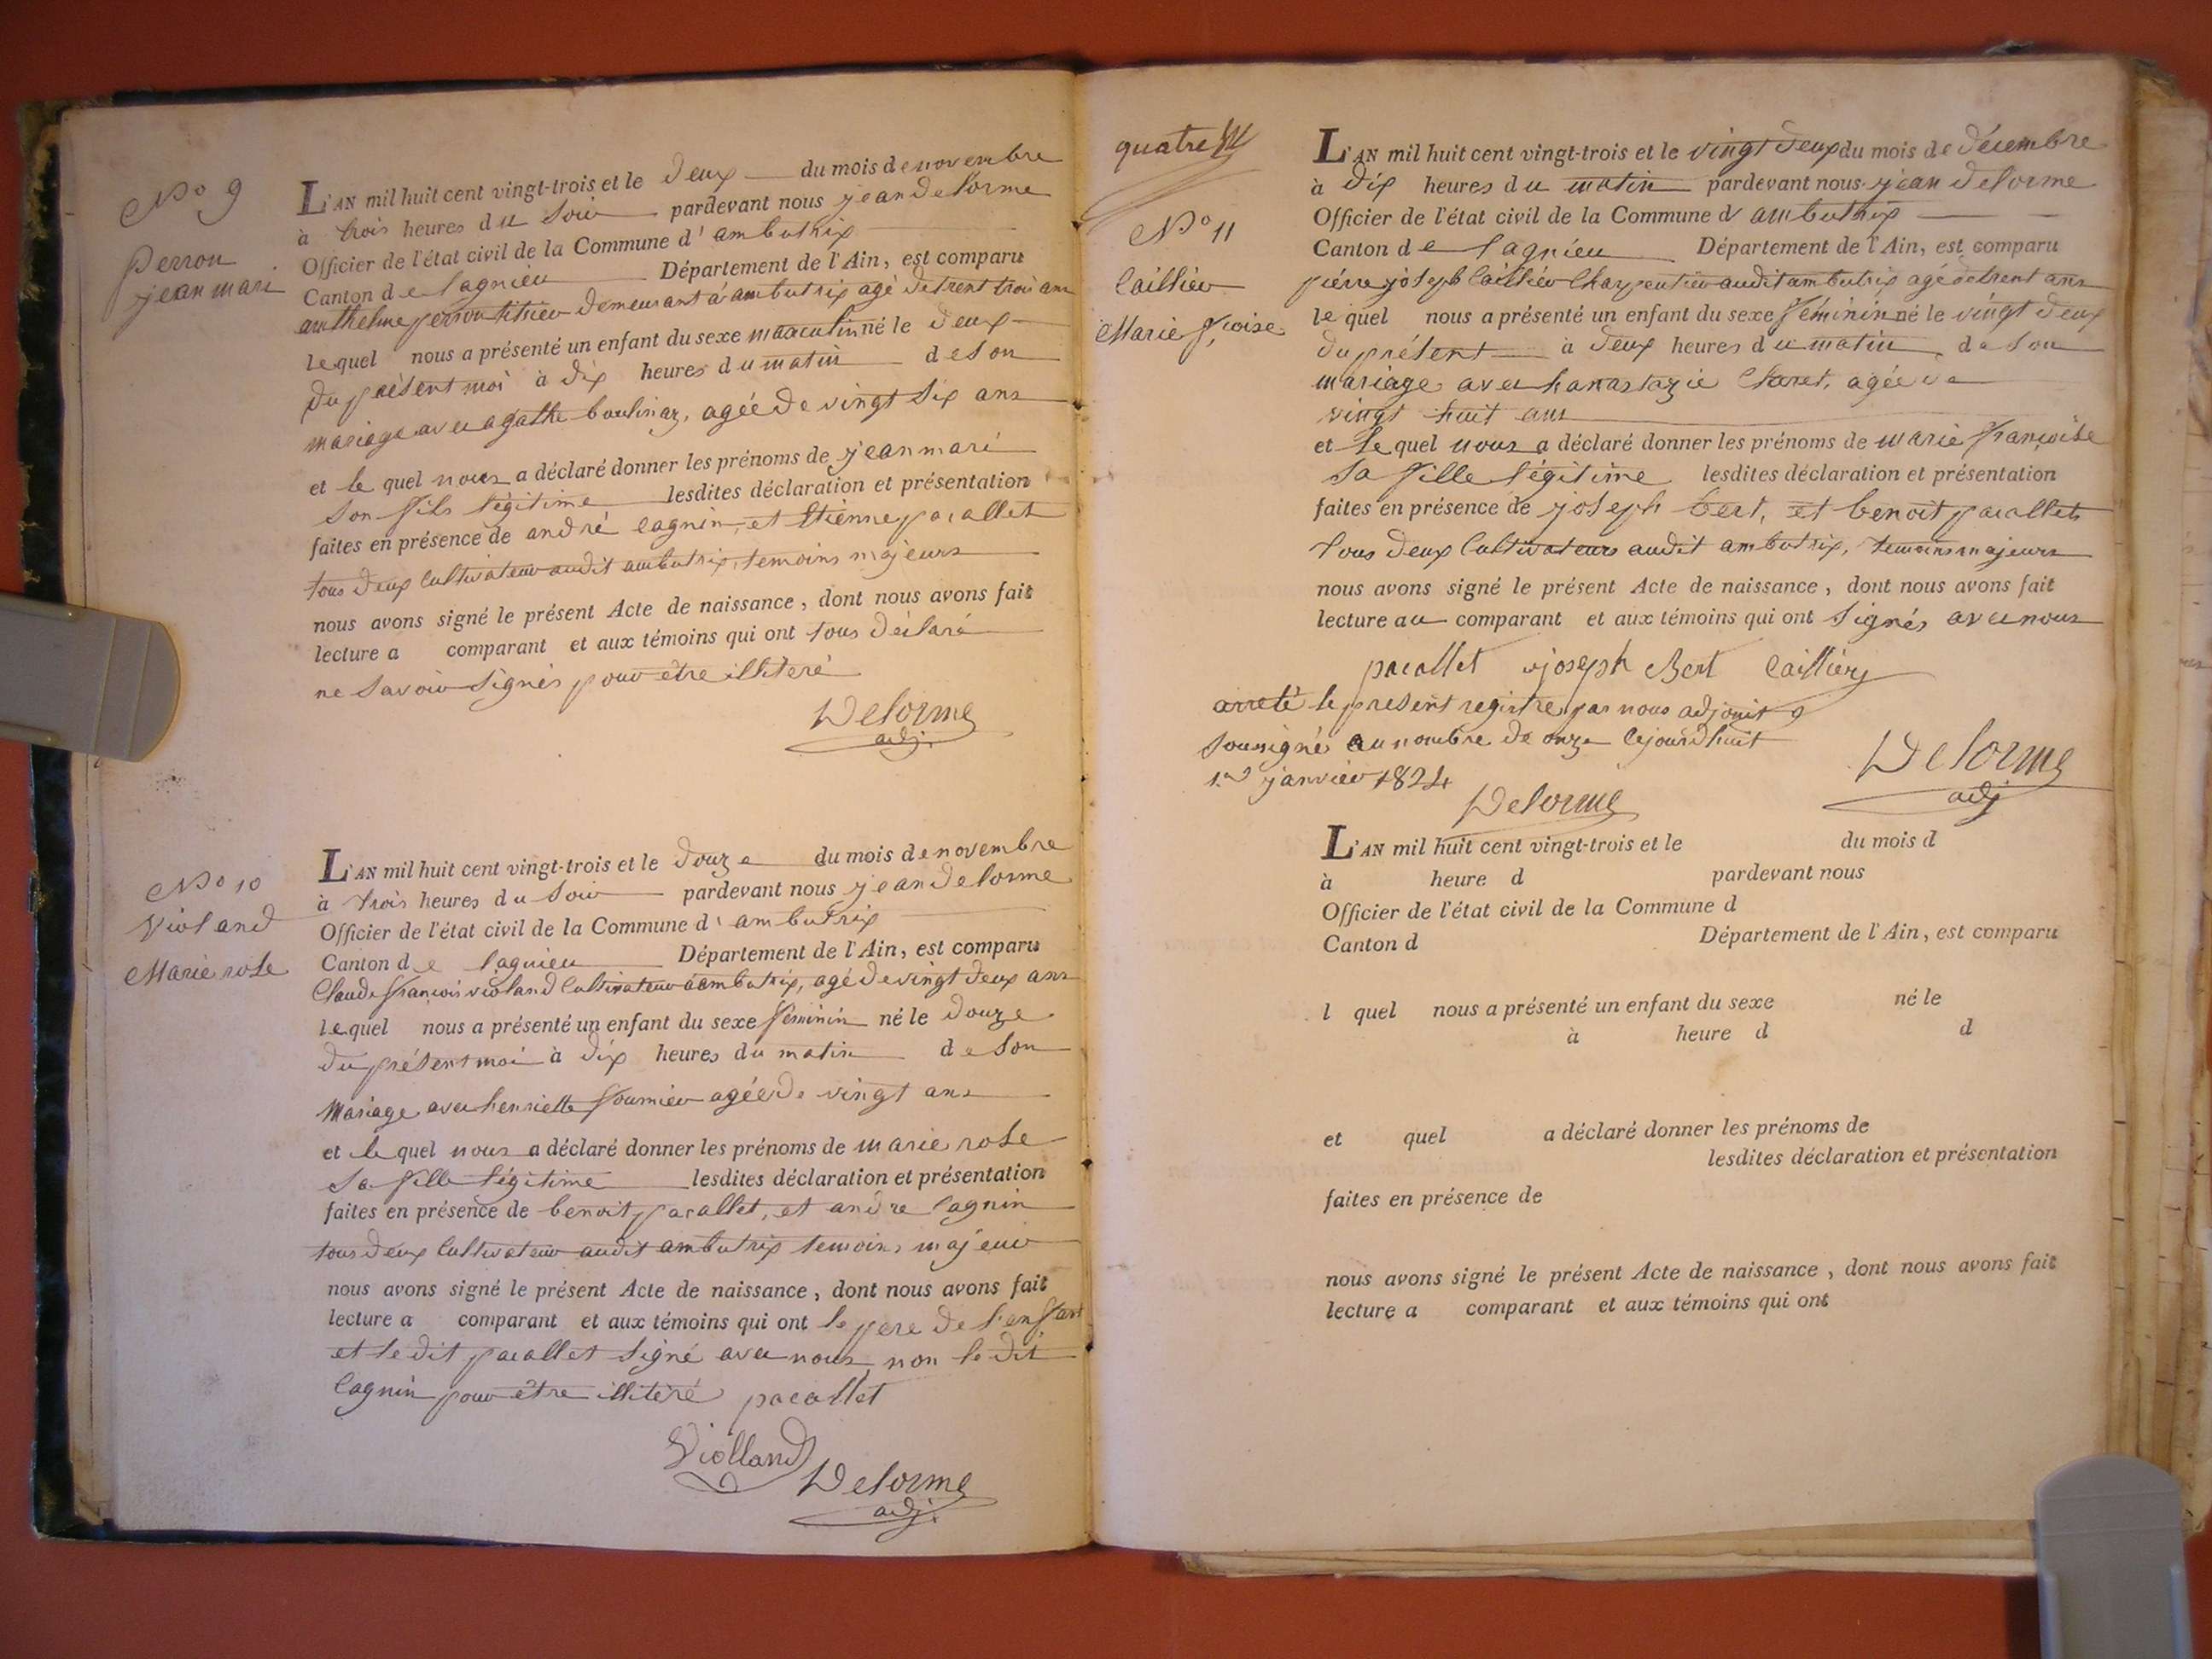 No 9
Perron
jean mari
L'AN mil huit cent vingt-trois et le deux du mois de novembre
à trois heures du soir pardevant nous jean delorme
Officier de l'état civil de la Commune d'ambutrix
Canton de lagnieu Département de l'Ain, est comparu
anthelme perron demeurant à ambutrix agé de trent trois ans
lequel nous a présenté un enfant du sexe masculin né le deux
du présent moi à dix heures du matin de son
mariage avec agathe boulinaz, agée de vingt six ans
et le quel nous a déclaré donner les prénoms de jean mari
son fils légitime lesdites déclaration et présentation
faites en présence de andré cagnin, et Etienne pacallet
tous deux cultivateur audit ambutrix, temoins majeurs
nous avons signé le présent Acte de naissance, dont nous avons fait
lecture a comparant et aux témoins qui ont tous déclaré
ne savoir signés pour être illiteré
Delorme
adj.
No 10
Violand
Marie rose
L'AN mil huit cent vingt-trois et le douze du mois de novembre
à trois heures du soir pardevant nous jean delorme
Officier de l'état civil de la Commune d'ambutrix
Canton de lagnieu Département de l'Ain, est comparu
Claude françois violand cultivateur à ambutrix, agé de vingt deux ans
lequel nous a présenté un enfant du sexe féminin né le douze
du présent moi à dix heures du matin de son
mariage avec henriette fournier agée de vingt ans
et le quel nous a déclaré donner les prénoms de marie rose
sa fille légitime lesdites déclaration et présentation
faites en présence de benoit pacallet, et andre cagnin
tous deux cultivateur audit ambutrix temoins majeur
nous avons signé le présent Acte de naissance, dont nous avons fait
lecture a comparant et aux témoins qui ont le père de l'enfant
et le dit pacallet signé avec nous non le dit
cagnin pour être illitéré pacallet
Violland
Delorme
adj.
quatre
No 11
Caillier
Marie fçoise
L'AN mil huit cent vingt-trois et le vingt deux du mois de décembre
à dix heures du matin pardevant nous jean delorme
Officier de l'état civil de la Commune d ambutrix
Canton de lagnieu Département de l'Ain, est comparu
pierre joseph Caillier Charpentier audit ambutrix agé de trent ans
le quel nous a présenté un enfant du sexe féminin né le vingt deux
du présent à deux heures du matin de son
mariage avec hanastazie Claret, agée de
vingt huit ans
et le quel nous a déclaré donner les prénoms de marie françoise
sa fille légitime lesdites déclaration et présentation
faites en présence de joseph bert, et benoit pacallet
tous deux Cultivateurs audit ambutrix, temoins majeurs
nous avons signé le présent Acte de naissance, dont nous avons fait
lecture au comparant et aux témoins qui ont signés avec nous
pacallet joseph Bert Caillier
arreté le present registre par nous adjoint
sousigné au nombre de onze cejourdhuit
1er janvier 1824
Delorme
Delorme
adj
L'AN mil huit cent vingt-trois et le du mois d
à heure d pardevant nous
Officier de l'état civil de la Commune d
Canton d Département de l'Ain, est comparu
l quel nous a présenté un enfant du sexe né le
à heure d d
et quel a déclaré donner les prénoms de
lesdites déclaration et présentation
faites en présence de
nous avons signé le présent Acte de naissance, dont nous avons fait
lecture a comparant et aux témoins qui ont